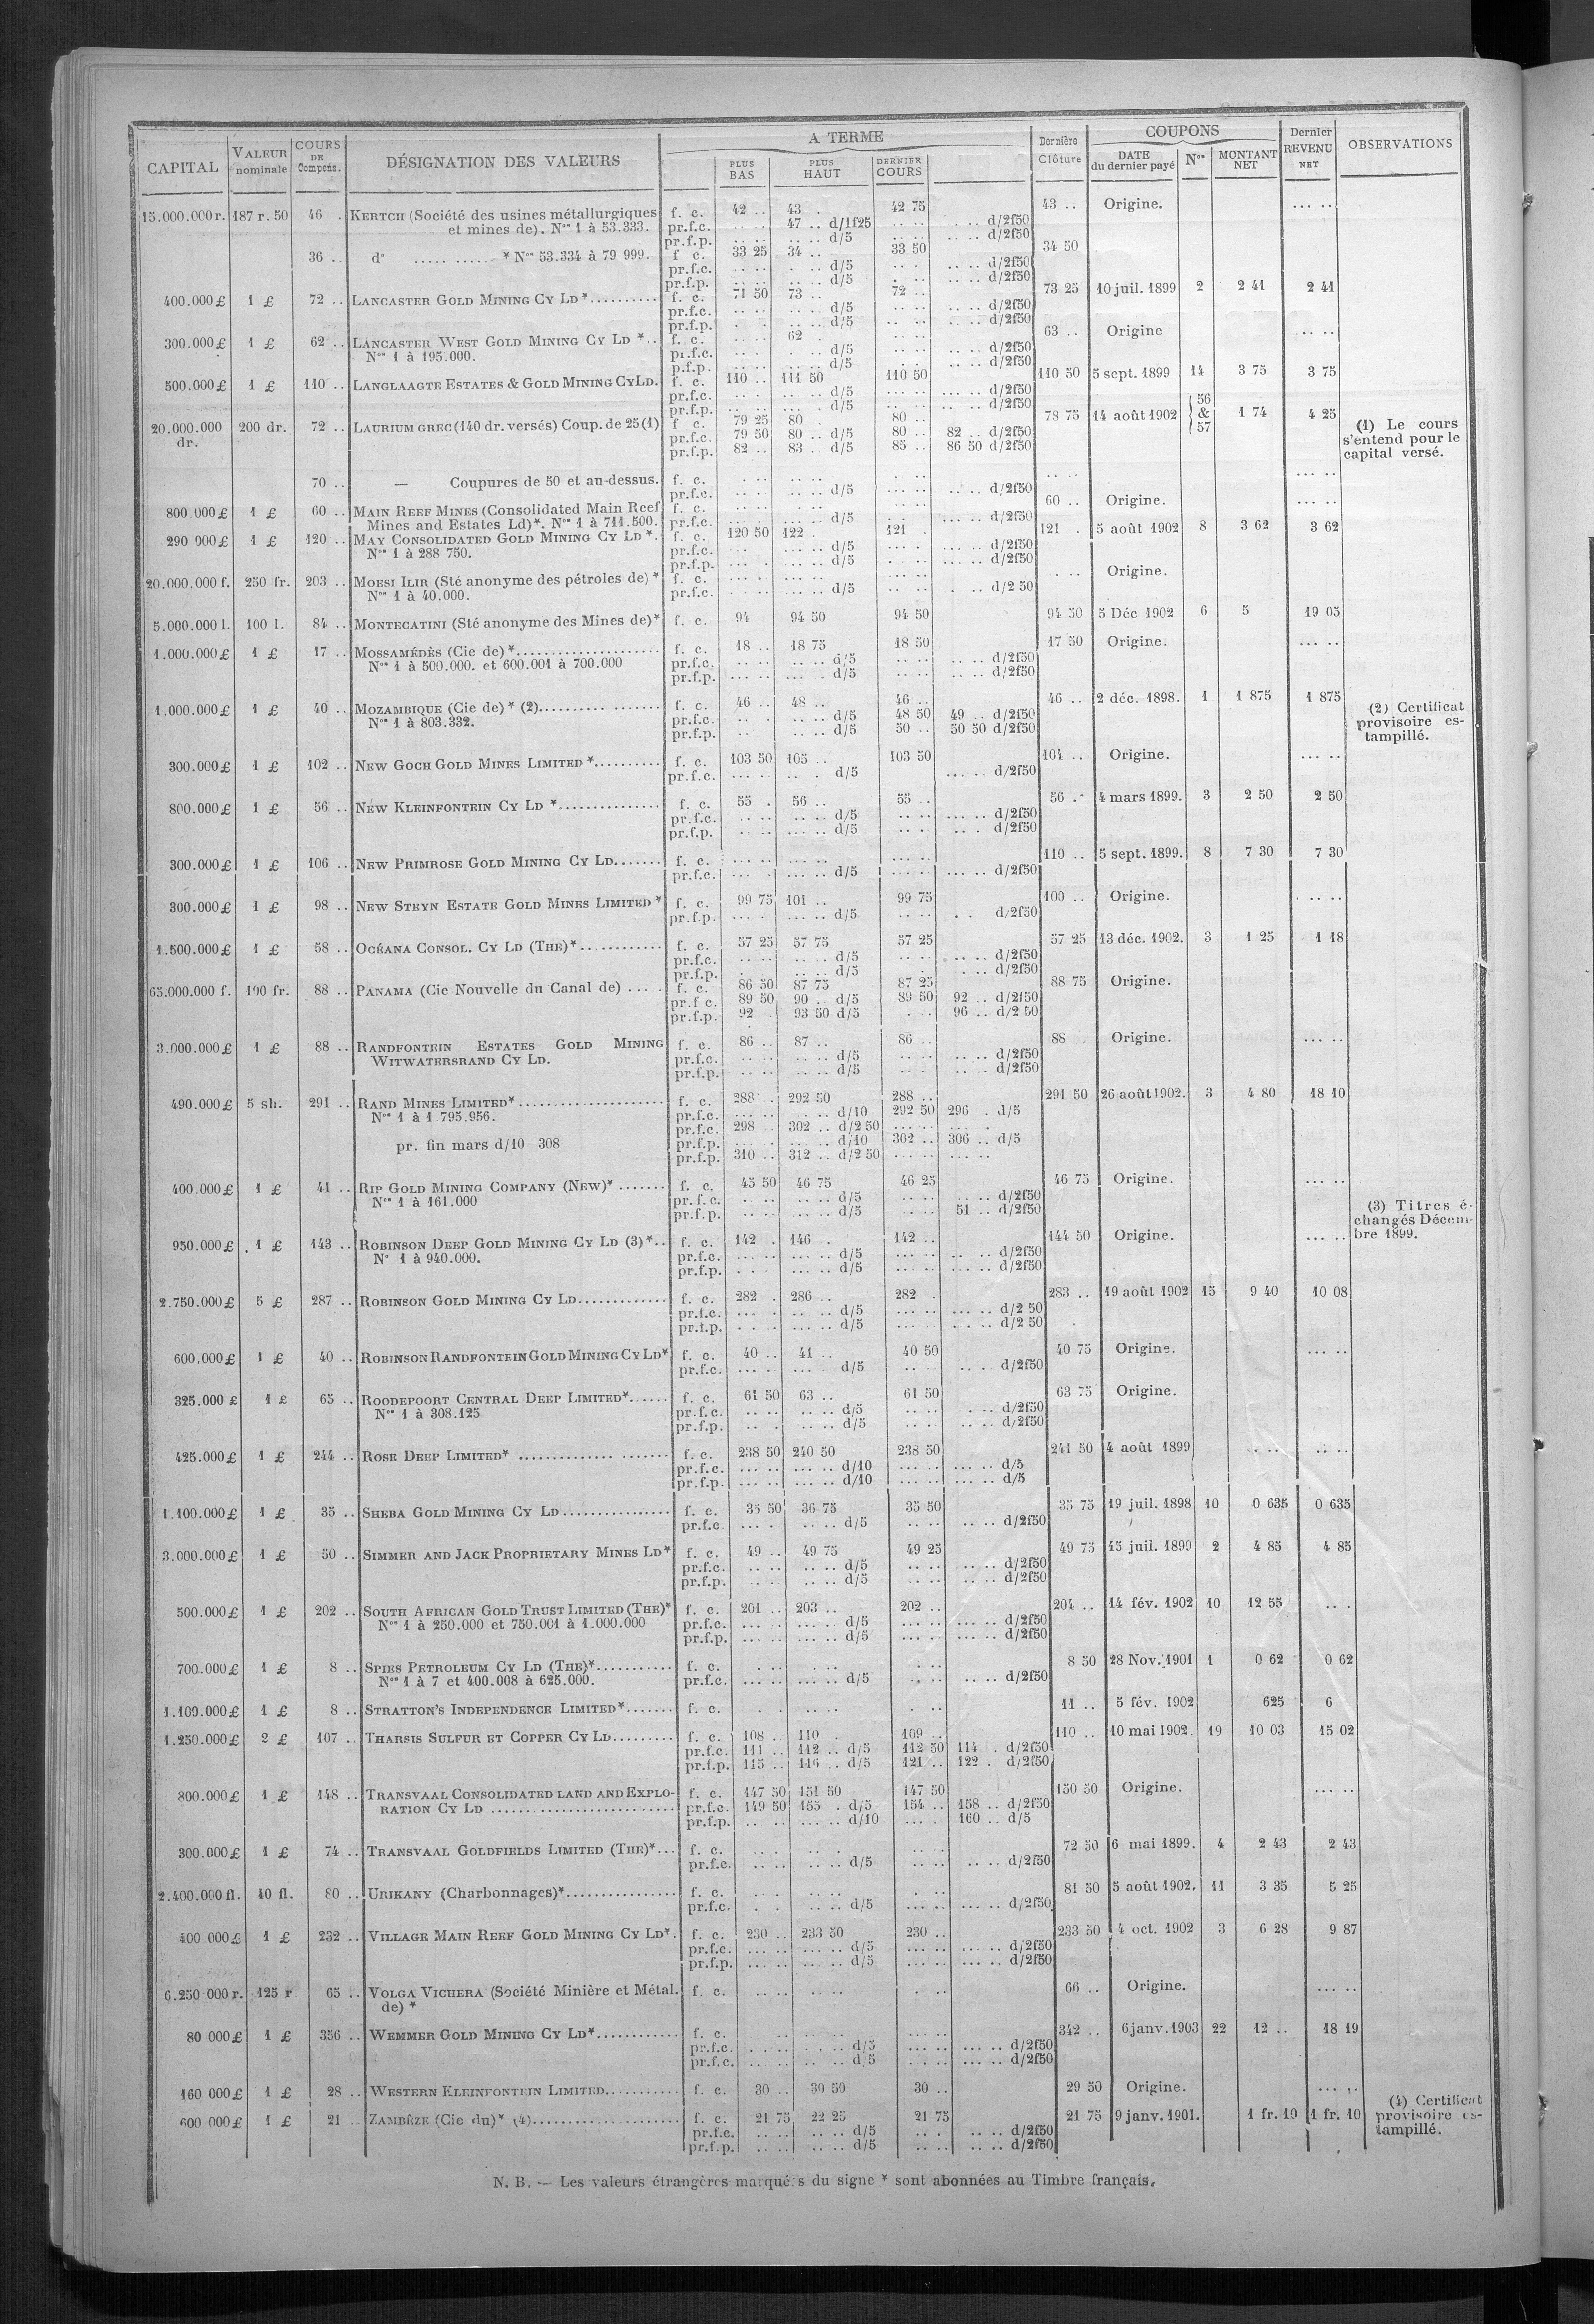 CAPITAL | VALEUR nominale | COURS DE Compens. | DÉSIGNATION DES VALEURS | A TERME | PLUS BAS | PLUS HAUT | DERNIER COURS | Dernière Clôture | COUPONS | DATE du dernier payé | Nos | MONTANT NET | Dernier REVENU NET | OBSERVATIONS
15.000.000 r. 187 r. 50 46 . KERTCH (Société des usines métallurgiques f. c. 42 .. 43 . 42 75 43 .. Origine. ... ..
et mines de). Nos 1 à 53.333. pr.f.c. .. .. 47 .. d/1f25 .. .. .. .. d/2f50
pr.f.p. .. .. .. .. d/5 .. .. .. .. d/2f50
36 .. do ..... ..... * Nos 53.334 à 79 999. f c. 33 25 34 .. 33 50 34 50
pr.f.c. .. .. . .. d/5 .. . .. .. d/2f50
pr.f.p. .. .. .. .. d/5 .. .. .. .. d/2f50
400.000 £ 1 £ 72 .. LANCASTER GOLD MINING CY LD *.......... f. c. 71 50 73 .. 72 .. 73 25 10 juil. 1899 2 2 41 2 41
pr.f.c. .. .. .. .. d/5 .. .. .. .. d/2f50
pr.f.p. . . .. .. d/5 .. .. .. .. d/2f50
300.000 £ 1 £ 62 .. LANCASTER WEST GOLD MINING CY LD *.. f. c. .. .. 62 . .. .. 63 .. Origine ... ..
Nos 1 à 195.000. pr.f.c. .. . . .. d/5 .. .. .. .. d/2f50
p.f.p. .. .. .. .. d/5 .. .. .. .. d/2f50
500.000 £ 1 £ 110 .. LANGLAAGTE ESTATES & GOLD MINING CY LD. f. c. 110 .. 111 50 110 50 110 50 5 sept. 1899 14 3 75 3 75
pr.f.c. .. . .. .. d/5 ... .. .. .. d/2f50
pr.f.p. .. .. ... . d/5 .. .. .. .. d/2f50
20.000.000 dr. 200 dr. 72 .. LAURIUM GREC (140 dr. versés) Coup. de 25 (1) f c. 79 25 80 . 80 .. 78 75 14 août 1902 56 & 57 1 74 4 25 (1) Le cours s'entend pour le capital versé.
pr.f.c. 79 50 80 .. d/5 80 .. 82 .. d/2f50
pr.f.p. 82 .. 83 .. d/5 85 .. 86 50 d/2f50
70 .. — Coupures de 50 et au-dessus. f. c. . .. .. .. . .. .. .. ... ..
pr.f.c. .. .. .. .. d/5 ... .. .. .. d/2f50
800 000 £ 1 £ 60 .. MAIN REEF MINES (Consolidated Main Reef f. c. ... .. .. .. .. .. 60 .. Origine. ... ..
Mines and Estates Ld)*. Nos 1 à 711.500. pr.f.c. ... .. ... .. d/5 .. . ... .. d/2f50
290 000 £ 1 £ 120 .. MAY CONSOLIDATED GOLD MINING CY LD *. f. c. 120 50 122 . 121 . 121 . 5 août 1902 8 3 62 3 62
Nos 1 à 288 750. pr.f.c. ... ... .. d/5 ... . ... .. d/2f50
pr.f.p. ... . ... .. d/5 . .. ... .. d/2f50
20.000.000 f. 250 fr. 203 .. MOESI ILIR (Sté anonyme des pétroles de) * f. c. ... .. ... .. ... .. .. .. Origine.
Nos 1 à 40.000. pr.f.c. .. .. ... .. d/5 .. .. . .. d/2 50
5.000.000 l. 100 l. 84 .. MONTECATINI (Sté anonyme des Mines de)* f. c. 94 94 50 94 50 94 50 5 Déc 1902 6 5 19 05
1.000.000 £ 1 £ 17 .. MOSSAMÉDÈS (Cie de) *.................... f. c. 18 .. 18 75 18 50 17 50 Origine. ... ..
Nos 1 à 500.000. et 600.001 à 700.000 pr.f.c. .. .. .. .. d/5 .. .. .. .. d/2f50
pr.f.p. ... .. ... . d/5 .. .. .. .. d/2f50
1.000.000 £ 1 £ 40 .. MOZAMBIQUE (Cie de) * (2)................ f. c. 46 .. 48 .. 46 .. 46 .. 2 déc. 1898. 1 1 875 1 875 (2) Certificat provisoire estampillé.
Nos 1 à 803.332. pr.f.c. .. . .. .. d/5 48 50 49 .. d/2f50
pr.f.p. .. .. .. .. d/5 50 .. 50 50 d/2f50
300.000 £ 1 £ 102 .. NEW GOCH GOLD MINES LIMITED *.......... f. c. 103 50 105 .. 103 50 104 .. Origine. ... ..
pr.f.c. ... .. .. . d/5 ... .. d/2f50
800.000 £ 1 £ 56 .. NEW KLEINFONTEIN CY LD *............... f. c. 55 . 56 .. 55 .. 56 .. 4 mars 1899. 3 2 50 2 50
pr.f.c. .. .. ... .. d/5 .. .. ... .. d/2f50
pr.f.p. .. .. ... .. d/5 .. .. .. . d/2f50
300.000 £ 1 £ 106 .. NEW PRIMROSE GOLD MINING CY LD....... f. c. ... .. ... .. ... .. 110 .. 5 sept. 1899. 8 7 30 7 30
pr.f.c. ... . ... .. d/5 ... .. ... .. d/2f50
300.000 £ 1 £ 98 .. NEW STEYN ESTATE GOLD MINES LIMITED * f. c. 99 75 101 .. 99 75 100 .. Origine. . .. ..
pr.f.p. ... . ... .. d/5 .. .. . . d/2f50
1.500.000 £ 1 £ 58 .. OCÉANA CONSOL. CY LD (THE)*............ f. c. 57 25 57 75 57 25 57 25 13 déc. 1902. 3 1 25 1 18
pr.f.c. .. .. .. .. d/5 .. .. .. .. d/2f50
pr.f.p. . .. .. d/5 .. . . .. d/2f50
65.000.000 f. 100 fr. 88 .. PANAMA (Cie Nouvelle du Canal de) ..... f. c. 86 50 87 75 87 25 88 75 Origine.
pr.f c. 89 50 90 .. d/5 89 50 92 .. d/2f50
pr.f.p. 92 . 93 50 d/5 . . 96 .. d/2 50
3.000.000 £ 1 £ 88 .. RANDFONTEIN ESTATES GOLD MINING f. c. 86 .. 87 .. 86 .. 88 Origine. ... ..
WITWATERSRAND CY LD. pr.f.c. .. .. .. .. d/5 .. .. .. .. d/2f50
pr.f.p. .. .. .. .. d/5 .. .. .. .. d/2f50
490.000 £ 5 sh. 291 .. RAND MINES LIMITED*.................... f. c. 288 .. 292 50 288 .. 291 50 26 août 1902. 3 4 80 18 10
Nos 1 à 1 795.956. pr.f.c. ... .. . .. d/10 292 50 296 . d/5
pr.f.c. 298 .. 302 .. d/2 50 ... .. ... .
pr. fin mars d/10 308 pr.f.p. ... . .. .. d/10 302 .. 306 .. d/5
pr.f.p. 310 .. 312 .. d/2 50 ... .. ... ..
400.000 £ 1 £ 41 .. RIP GOLD MINING COMPANY (NEW)* ....... f. c. 45 50 46 75 46 25 46 75 Origine. ... ..
Nos 1 à 161.000 pr.f.c. .. .. .. .. d/5 .. .. .. .. d/2f50
pr.f.p. .. .. .. .. d/5 .. .. 51 .. d/2f50
950.000 £ 1 £ 143 .. ROBINSON DEEP GOLD MINING CY LD (3)*.. f. c. 142 . 146 . 142 .. 144 50 Origine. ... .. (3) Titres échangés Décembre 1899.
No 1 à 940.000. pr.f.c. ... .. ... .. d/5 ... .. .. .. d/2f50
pr.f.p. . . . ... .. d/5 ... .. ... .. d/2f50
2.750.000 £ 5 £ 287 .. ROBINSON GOLD MINING CY LD............. f. c. 282 . 286 .. 282 . 283 .. 19 août 1902 15 9 40 10 08
pr.f.c. ... . .. .. d/5 ... .. ... .. d/2 50
pr.f.p. . . . ... .. d/5 ... .. ... .. d/2 50
600.000 £ 1 £ 40 .. ROBINSON RANDFONTEIN GOLD MINING CY LD* f. c. 40 .. 41 .. 40 50 40 75 Origine. ... ..
pr.f.c. ... .. ... . d/5 .. .. .. d/2f50
325.000 £ 1 £ 65 .. ROODEPOORT CENTRAL DEEP LIMITED*...... f. c. 61 50 63 .. 61 50 63 75 Origine.
Nos 1 à 308.125 pr.f.c. .. .. .. .. d/5 .. .. . .. d/2f50
pr.f.p. .. . .. .. d/5 .. .. .. .. d/2f50
425.000 £ 1 £ 244 .. ROSE DEEP LIMITED* ..................... f. c. 238 50 240 50 238 50 241 50 4 août 1899 .. .. .. ..
pr.f.c. ... .. ... .. d/10 ... .. ... .. d/5
pr.f.p. ... .. ... .. d/10 ... .. ... .. d/5
1.100.000 £ 1 £ 35 .. SHEBA GOLD MINING CY LD................ f. c. 35 50 36 75 35 50 35 75 19 juil. 1898 10 0 635 0 635
pr.f.c ... . .. .. d/5 .. .. .. .. d/2f50
3.000.000 £ 1 £ 50 .. SIMMER AND JACK PROPRIETARY MINES LD* f. c. 49 .. 49 75 49 25 49 75 15 juil. 1899 2 4 85 4 85
pr.f.c. .. .. .. .. d/5 .. .. .. .. d/2f50
pr.f.p. .. .. .. .. d/5 .. .. .. .. d/2f50
500.000 £ 1 £ 202 .. SOUTH AFRICAN GOLD TRUST LIMITED (THE)* f. c. 201 .. 203 .. 202 .. 204 .. 14 fév. 1902 10 12 55 .. .
Nos 1 à 250.000 et 750.001 à 1.000.000 pr.f.c. ... .. ... .. d/5 ... .. ... .. d/2f50
pr.f.p. ... .. ... .. d/5 ... .. ... .. d/2f50
700.000 £ 1 £ 8 .. SPIES PETROLEUM CY LD (THE)*........... f. c. .. .. .. .. . .. 8 50 28 Nov. 1901 1 0 62 0 62
Nos 1 à 7 et 400.008 à 625.000. pr.f.c. ... .. ... .. d/5 .. .. .. .. d/2f50
1.100.000 £ 1 £ 8 .. STRATTON'S INDEPENDENCE LIMITED*....... f. c. . . .. .. . .. 11 .. 5 fév. 1902 625 6
1.250.000 £ 2 £ 107 .. THARSIS SULFUR ET COPPER CY LD......... f. c. 108 .. 110 . 109 .. 110 .. 10 mai 1902. 19 10 03 15 02
pr.f.c. 111 .. 112 .. d/5 112 50 114 . d/2f50
pr.f.p. 115 .. 116 .. d/5 121 .. 122 . d/2f50
800.000 £ 1 £ 148 .. TRANSVAAL CONSOLIDATED LAND AND EXPLO- f. c. 147 50 151 50 147 50 150 50 Origine. ... ..
RATION CY LD .......................... pr.f.c. 149 50 155 . d/5 154 .. 158 .. d/2f50
pr.f.p. .. .. ... .. d/10 ... . 160 .. d/5
300.000 £ 1 £ 74 .. TRANSVAAL GOLDFIELDS LIMITED (THE)*... f. c. .. . .. . .. .. 72 50 6 mai 1899. 4 2 43 2 43
pr.f.c. .. .. .. .. d/5 .. .. .. .. d/2f50
2.400.000 fl. 40 fl. 80 .. URIKANY (Charbonnages)*................ f. c. . . . .. .. . .. 81 50 5 août 1902. 11 3 35 5 25
pr.f.c. . . .. .. d/5 ... .. ... .. d/2f50
400 000 £ 1 £ 232 .. VILLAGE MAIN REEF GOLD MINING CY LD*. f. c. 230 .. 233 50 230 .. 233 50 4 oct. 1902 3 6 28 9 87
pr.f.c. ... .. ... .. d/5 ... .. ... .. d/2f50
pr.f.p. ... .. ... .. d/5 ... .. ... .. d/2f50
6.250 000 r. 125 r 65 .. VOLGA VICHERA (Société Minière et Métal. f. c. .. .. .. .. . .. 66 .. Origine. ... ..
de) *
80 000 £ 1 £ 356 .. WEMMER GOLD MINING CY LD*............ f. c. .. .. .. .. ... .. 342 .. 6 janv. 1903 22 12 .. 18 19
pr.f.c. . .. . . .. d/5 ... .. ... .. d/2f50
pr.f.c. . .. .. .. d/5 . .. .. ... .. d/2f50
160 000 £ 1 £ 28 .. WESTERN KLEINFONTEIN LIMITED........... f. c. 30 .. 30 50 30 .. 29 50 Origine. ... ..
600 000 £ 1 £ 21 .. ZAMBÈZE (Cie du)* (4).................... f. c. 21 75 22 25 21 75 21 75 9 janv. 1901. 1 fr. 10 1 fr. 10 (4) Certificat provisoire estampillé.
pr.f.c. .. .. .. .. d/5 .. . .. .. d/2f50
pr.f.p. .. .. .. .. d/5 .. .. .. .. d/2f50
N. B. — Les valeurs étrangères marquées du signe * sont abonnées au Timbre français.